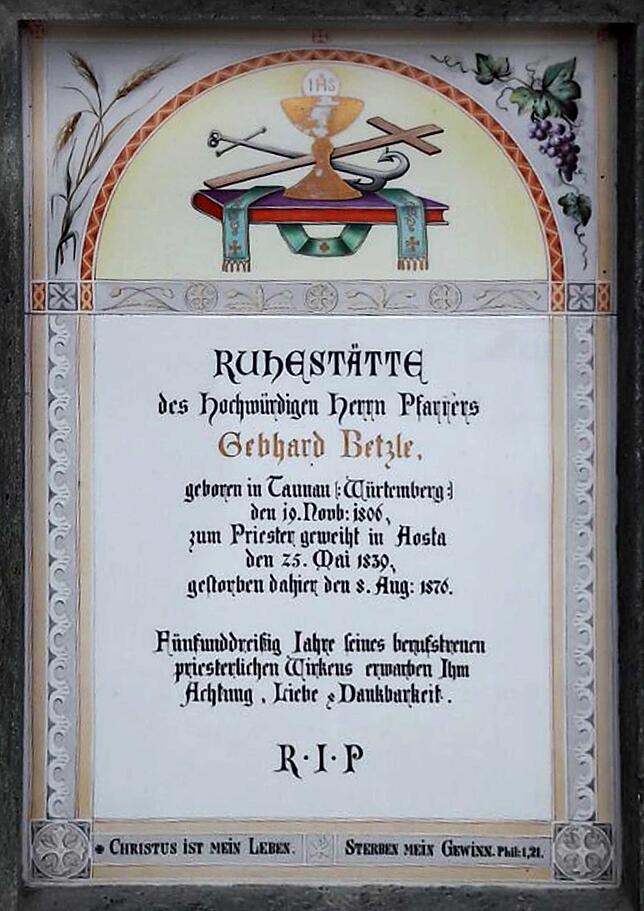 IHS
RUHESTÄTTE
des Hochwürdigen Herrn Pfarrers
Gebhard Betzle,
geboren in Taunau |: Würtemberg :|
den 19. Novb: 1806,
zum Priester geweiht in Aosta
den 25. Mai 1839,
gestorben dahier den 8. Aug: 1876.
Fünfunddreißig Jahre seines berufstreuen
priesterlichen Wirkens erwarben Ihm
Achtung, Liebe & Dankbarkeit.
R·I·P
CHRISTUS IST MEIN LEBEN. STERBEN MEIN GEWINN. Phil: 1,21.